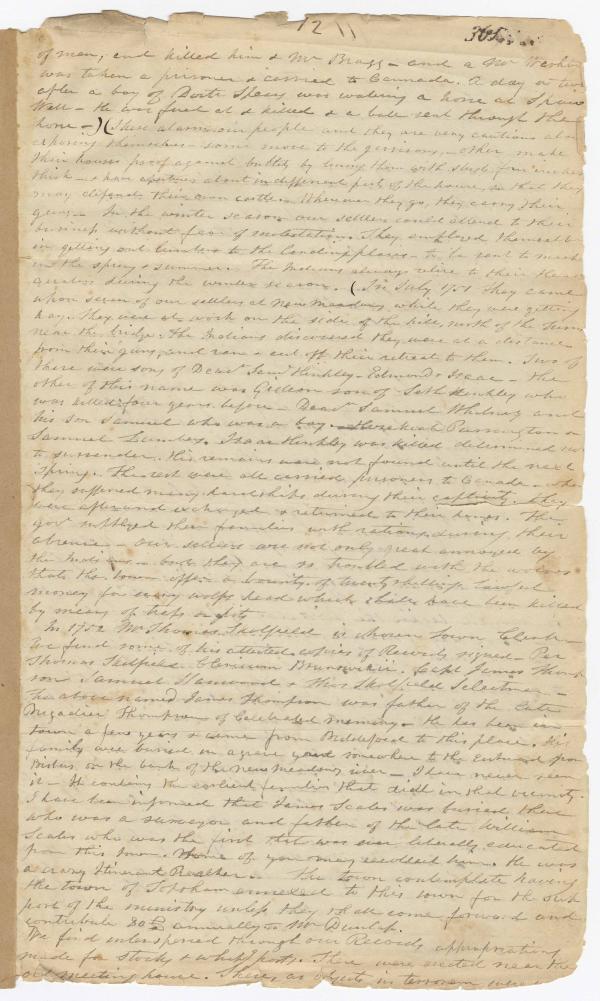 12 11 365
of man, and killed him & Mr Bragg — and a Mr
was taken a prisoner & carried to Cannada. A day or two
after a boy of Doite Speers was watering a horse at
Well — He was fired at & killed & a ball sent through the
horse —) (These alarm our people and they are very cautious about
exposing themselves — some move to the garrisons, — other make
their houses proof against bullets by lining them with
thick — & have apertures about in different parts of the house, so that they
may defend their own castle. Wherever they go, they carry their
guns — In the winter season our settlers could attend to their
business without fear of molestation. They employed themselves
in getting out lumber to the landing places — to be sent to market
in the spring & summer. The Indians always retire to their
quarters during the winter season. (In July 1751 they came
upon seven of our settlers at New Meadows, while they were getting
hay. They were at work on the side of the hill, north of the
near the bridge. The Indians discovered they were at a distance
from their guns, and ran & cut off their retreat to them. Two of
these were sons of Deacn Saml Hinkley — Edmund & Isaac — the
other of this name was Gideon son of Seth Hinkley who
was killed four years before — Deacn Samuel Whitney and
his son Samuel who was a boy — Hezekiah Purrington &
Samuel Lumbers. Isaac Hinkley was killed determined not
to surrender. His remains were not found until the next
Spring. The rest were all carried prisoners to Canada — where
they suffered many hardships during their captivity. They
were afterward exchanged & returned to their homes. The
govt supplyed their families with rations during their
absence — Our settlers are not only great annoyed by
the Indians — but they are so troubled with the wolves
that the town offer a bounty of twenty shillings lawful
money for every wolfs head which shall have been killed
by means of traps or pits
In 1752 Mr Thomas Skolfield is chosen Town Clerk —
We find some of his attested copies of Records signed — Per
Thomas Skolfield Clericum Brunswickii. Capt James Thomp
son Samuel Stanwood & Thos Skolfield Selectmen —
The above named James Thompson was father of the late
Brigadier Thompson of Celebrated memory — He has been in
town a few years & came from Biddeford to this place. His
family were buried in a grave yard somewhere to the Eastward from
on the bank of the New Meadows river — I have never seen
it — It contains the earliest families that dwelt in that vicinity.
I have been informed that James Scales was buried there
who was a surveyor and father of the late William
Scales who was the first that was ever liberally educated
from this town. Some of you may recollect him. He was
a crazy Itinerant Preacher. — The town contemplate having
the town of Topsham annexed to this town for the sup
port of the ministry unless they shall come forward and
contribute annually to Mr Dunlap.
We find interspersed through our Records appropriations
made for stocks & whipposts. These were erected near the
old meeting house. These, as objects in terrorem